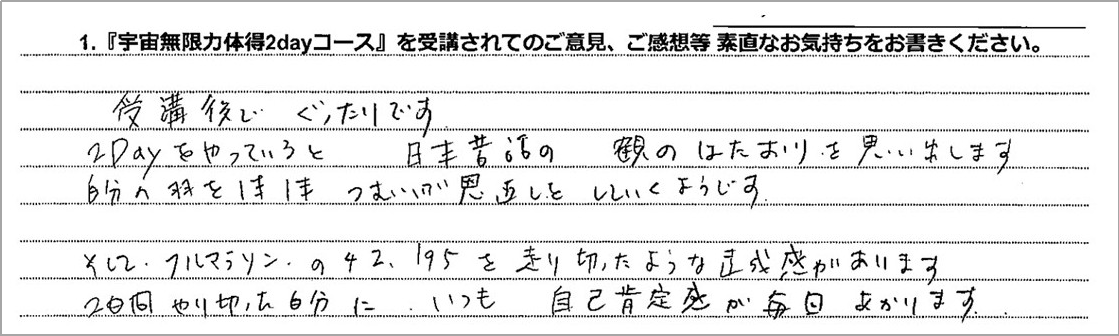 1.『宇宙無限力体得2dayコース』を受講されてのご意見、ご感想等 素直なお気持ちをお書きください。
受講後で ぐったりです
2Dayをやっていると 日本昔話の 観のはたおりを思い出します
自分の羽を1本1本 つむいで 恩返しを していくようです
そして、フルマラソン、の42、195を走り切ったような達成感があります
2日間やり切った自分に、いつも 自己肯定感が毎回あがります